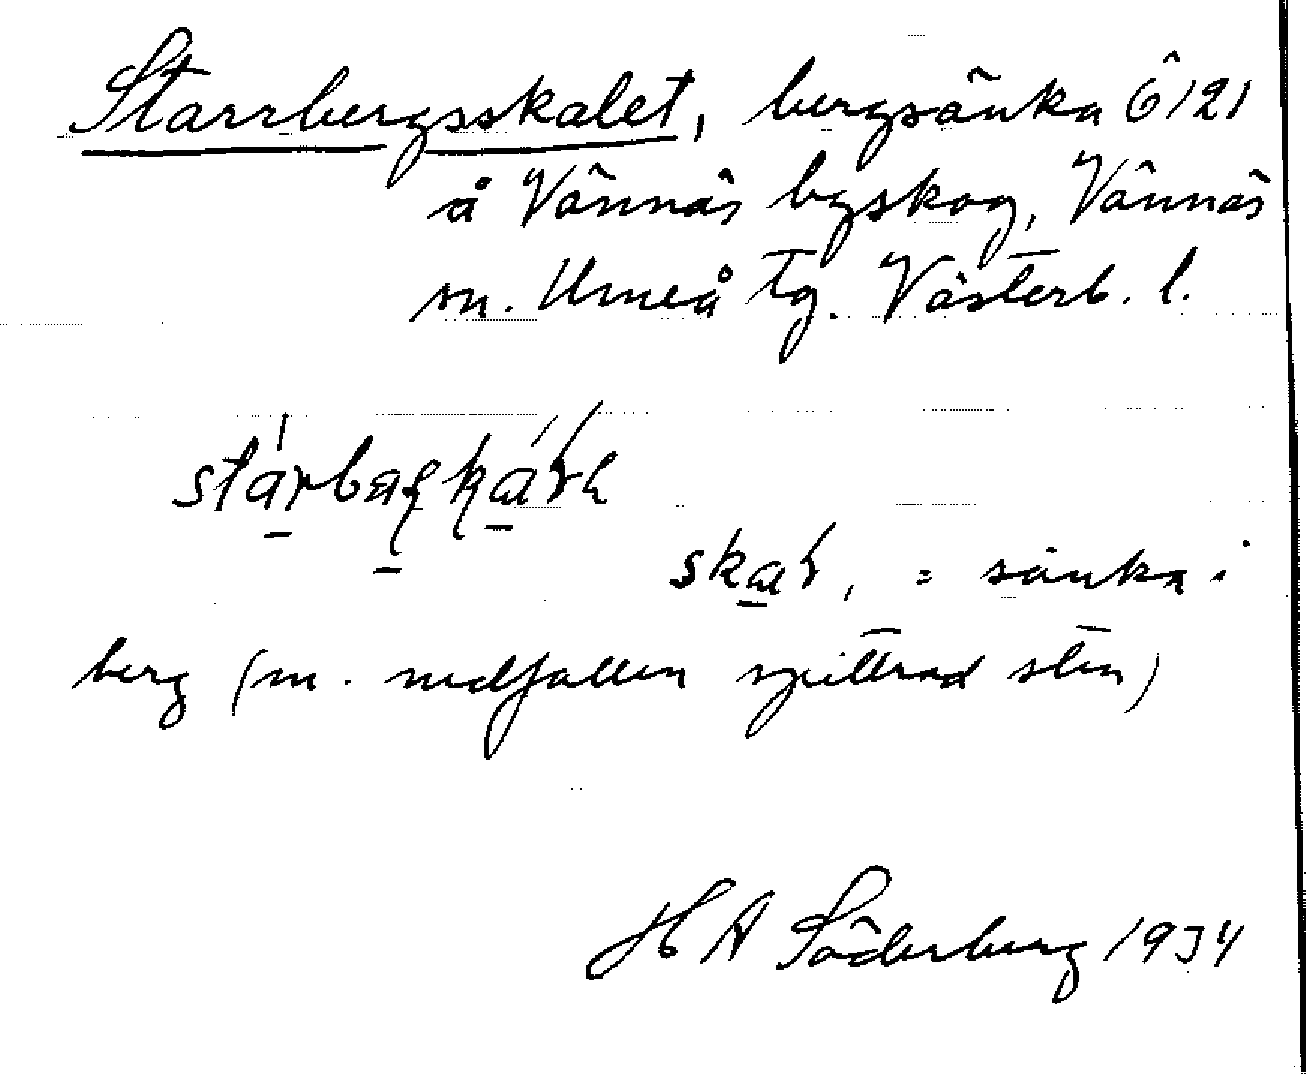 Starrbergsskalet, bergsänka Ö 121
å Vännäs byskog, Vännäs
sn. Umeå tg. Västerb. l.
skaɽ, = sänka i
berg (m. nedfallen splittrad sten)
H A Söderberg 1934